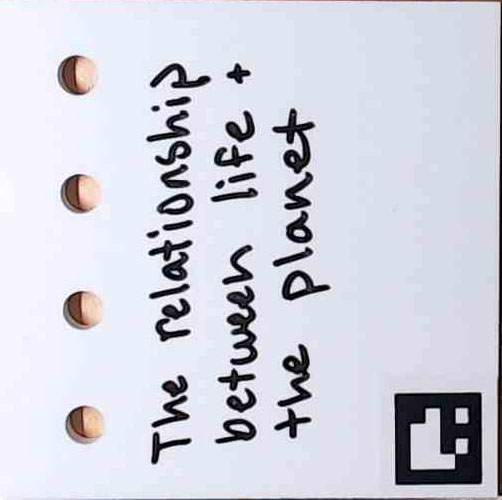 The relationship
between life +
the planet